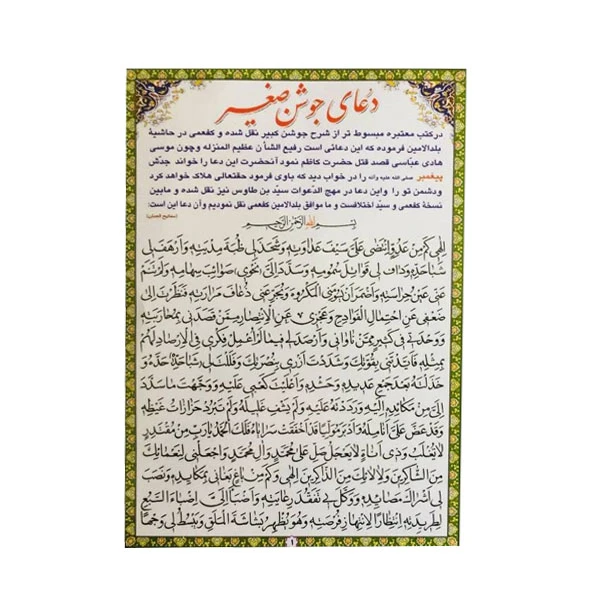 دعای جوشن صغیر
در کتب معتبره مبسوط تر از شرح جوشن کبیر نقل شده و کفعمی در حاشیهٔ
بلدالامین فرموده که این دعائی است رفیع الشأن عظیم المنزله و چون موسی
هادی عبّاسی قصد قتل حضرت کاظم نمود آنحضرت این دعا را خواند جدّش
پیغمبر صلی الله علیه وآله را در خواب دید که باوی فرمود حقتعالی هلاک خواهد کرد
ودشمن تو را واین دعا در مهج الدّعوات سیّد بن طاوس نیز نقل شده و مابین
نسخهٔ کفعمی و سیّد اختلافست و ما موافق بلدالامین کفعمی نقل نمودیم وآن دعا این است:
(مفاتیح الجنان)
بِسْمِ اللهِ الرَّحْمٰنِ الرَّحیمِ
اِلٰهی کَمْ مِنْ عَدُوٍّ انْتَضٰی عَلَیَّ سَیْفَ عَداوَتِهِ وَشَحَذَ لی ظُبَةَ مِدْیَتِهِ وَاَرْهَفَ لی
شَباحَدِّهِ وَدافَ لی قَواتِلَ سُمُومِهِ وَسَدَّدَ اِلَیَّ نَحْوی صَوائِبَ سِهامِهِ وَلَمْ تَنَمْ
عَنّی عَیْنُ حِراسَتِهِ وَاَضْمَرَ اَنْ یَسُومَنِی الْمَکْرُوهَ وَیُجَرِّعَنی ذُعافَ مَرارَتِهِ فَنَظَرْتَ اِلٰی
ضَعْفی عَنِ احْتِمالِ الْفَوادِحِ وَعَجْزی عَنِ الْاِنْتِصارِ مِمَّنْ قَصَدَنی بِمُحارَبَتِهِ
وَوَحْدَتی فی کَثیرٍ مِمَّنْ ناوانی وَاَرْصَدَ لی فیما لَمْ اُعْمِلْ فِکْری فِی الْاِرْصادِ لَهُمْ
بِمِثْلِهِ فَاَیَّدْتَنی بِقُوَّتِکَ وَشَدَدْتَ اَزْری بِنُصْرَتِکَ وَفَلَلْتَ لی شَباحَدِّهِ
وَخَذَلْتَهُ بَعْدَ جَمْعِ عَدیدِهِ وَحَشْدِهِ وَاَعْلَیْتَ کَعْبی عَلَیْهِ وَوَجَّهْتَ ماسَدَّدَ
اِلَیَّ مِنْ مَکائِدِهِ اِلَیْهِ وَرَدَدْتَهُ عَلَیْهِ وَلَمْ یَشْفِ غَلیلَهُ وَلَمْ تَبْرُدْ حَزازاتُ غَیْظِهِ
وَقَدْ عَضَّ عَلَیَّ اَنامِلَهُ وَاَدْبَرَ مُوَلِّیاً قَدْ اَخْفَقَتْ سَرایاهُ فَلَکَ الْحَمْدُ یارَبِّ مِنْ مُقْتَدِرٍ
لایُغْلَبُ وَذی اَناةٍ لایَعْجَلُ صَلِّ عَلٰی مُحَمَّدٍ وَآلِ مُحَمَّدٍ وَاجْعَلْنی لِنَعْمائِکَ
مِنَ الشّاکِرینَ وَلِآلائِکَ مِنَ الذّاکِرینَ اِلٰهی وَکَمْ مِنْ باغٍ بَغانی بِمَکایِدِهِ وَنَصَبَ
لی اَشْراکَ مَصایِدِهِ وَوَکَّلَ بی تَفَقُّدَ رِعایَتِهِ وَاَضْبَأَ اِلَیَّ اِضْباءَ السَّبُعِ
لِطَریدَتِهِ اِنْتِظاراً لِانْتِهازِ فُرْصَتِهِ وَهُوَ یُظْهِرُ بَشاشَةَ الْمَلَقِ وَیَبْسُطُ لی وَجْهاً
۱